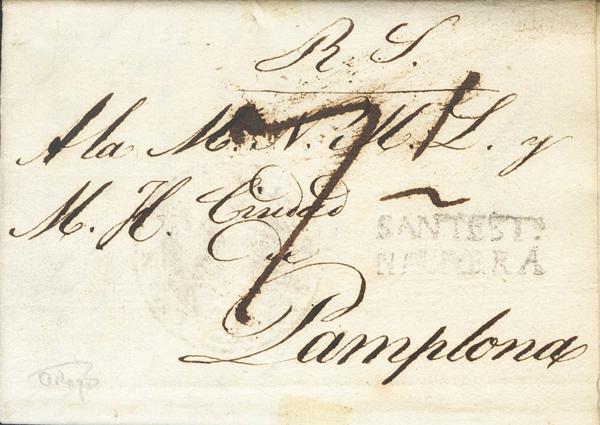 R. S.
A la M. N. M. L. y
M. H. Ciudad
de
Pamplona
7
SANTESTº
NAVARRA